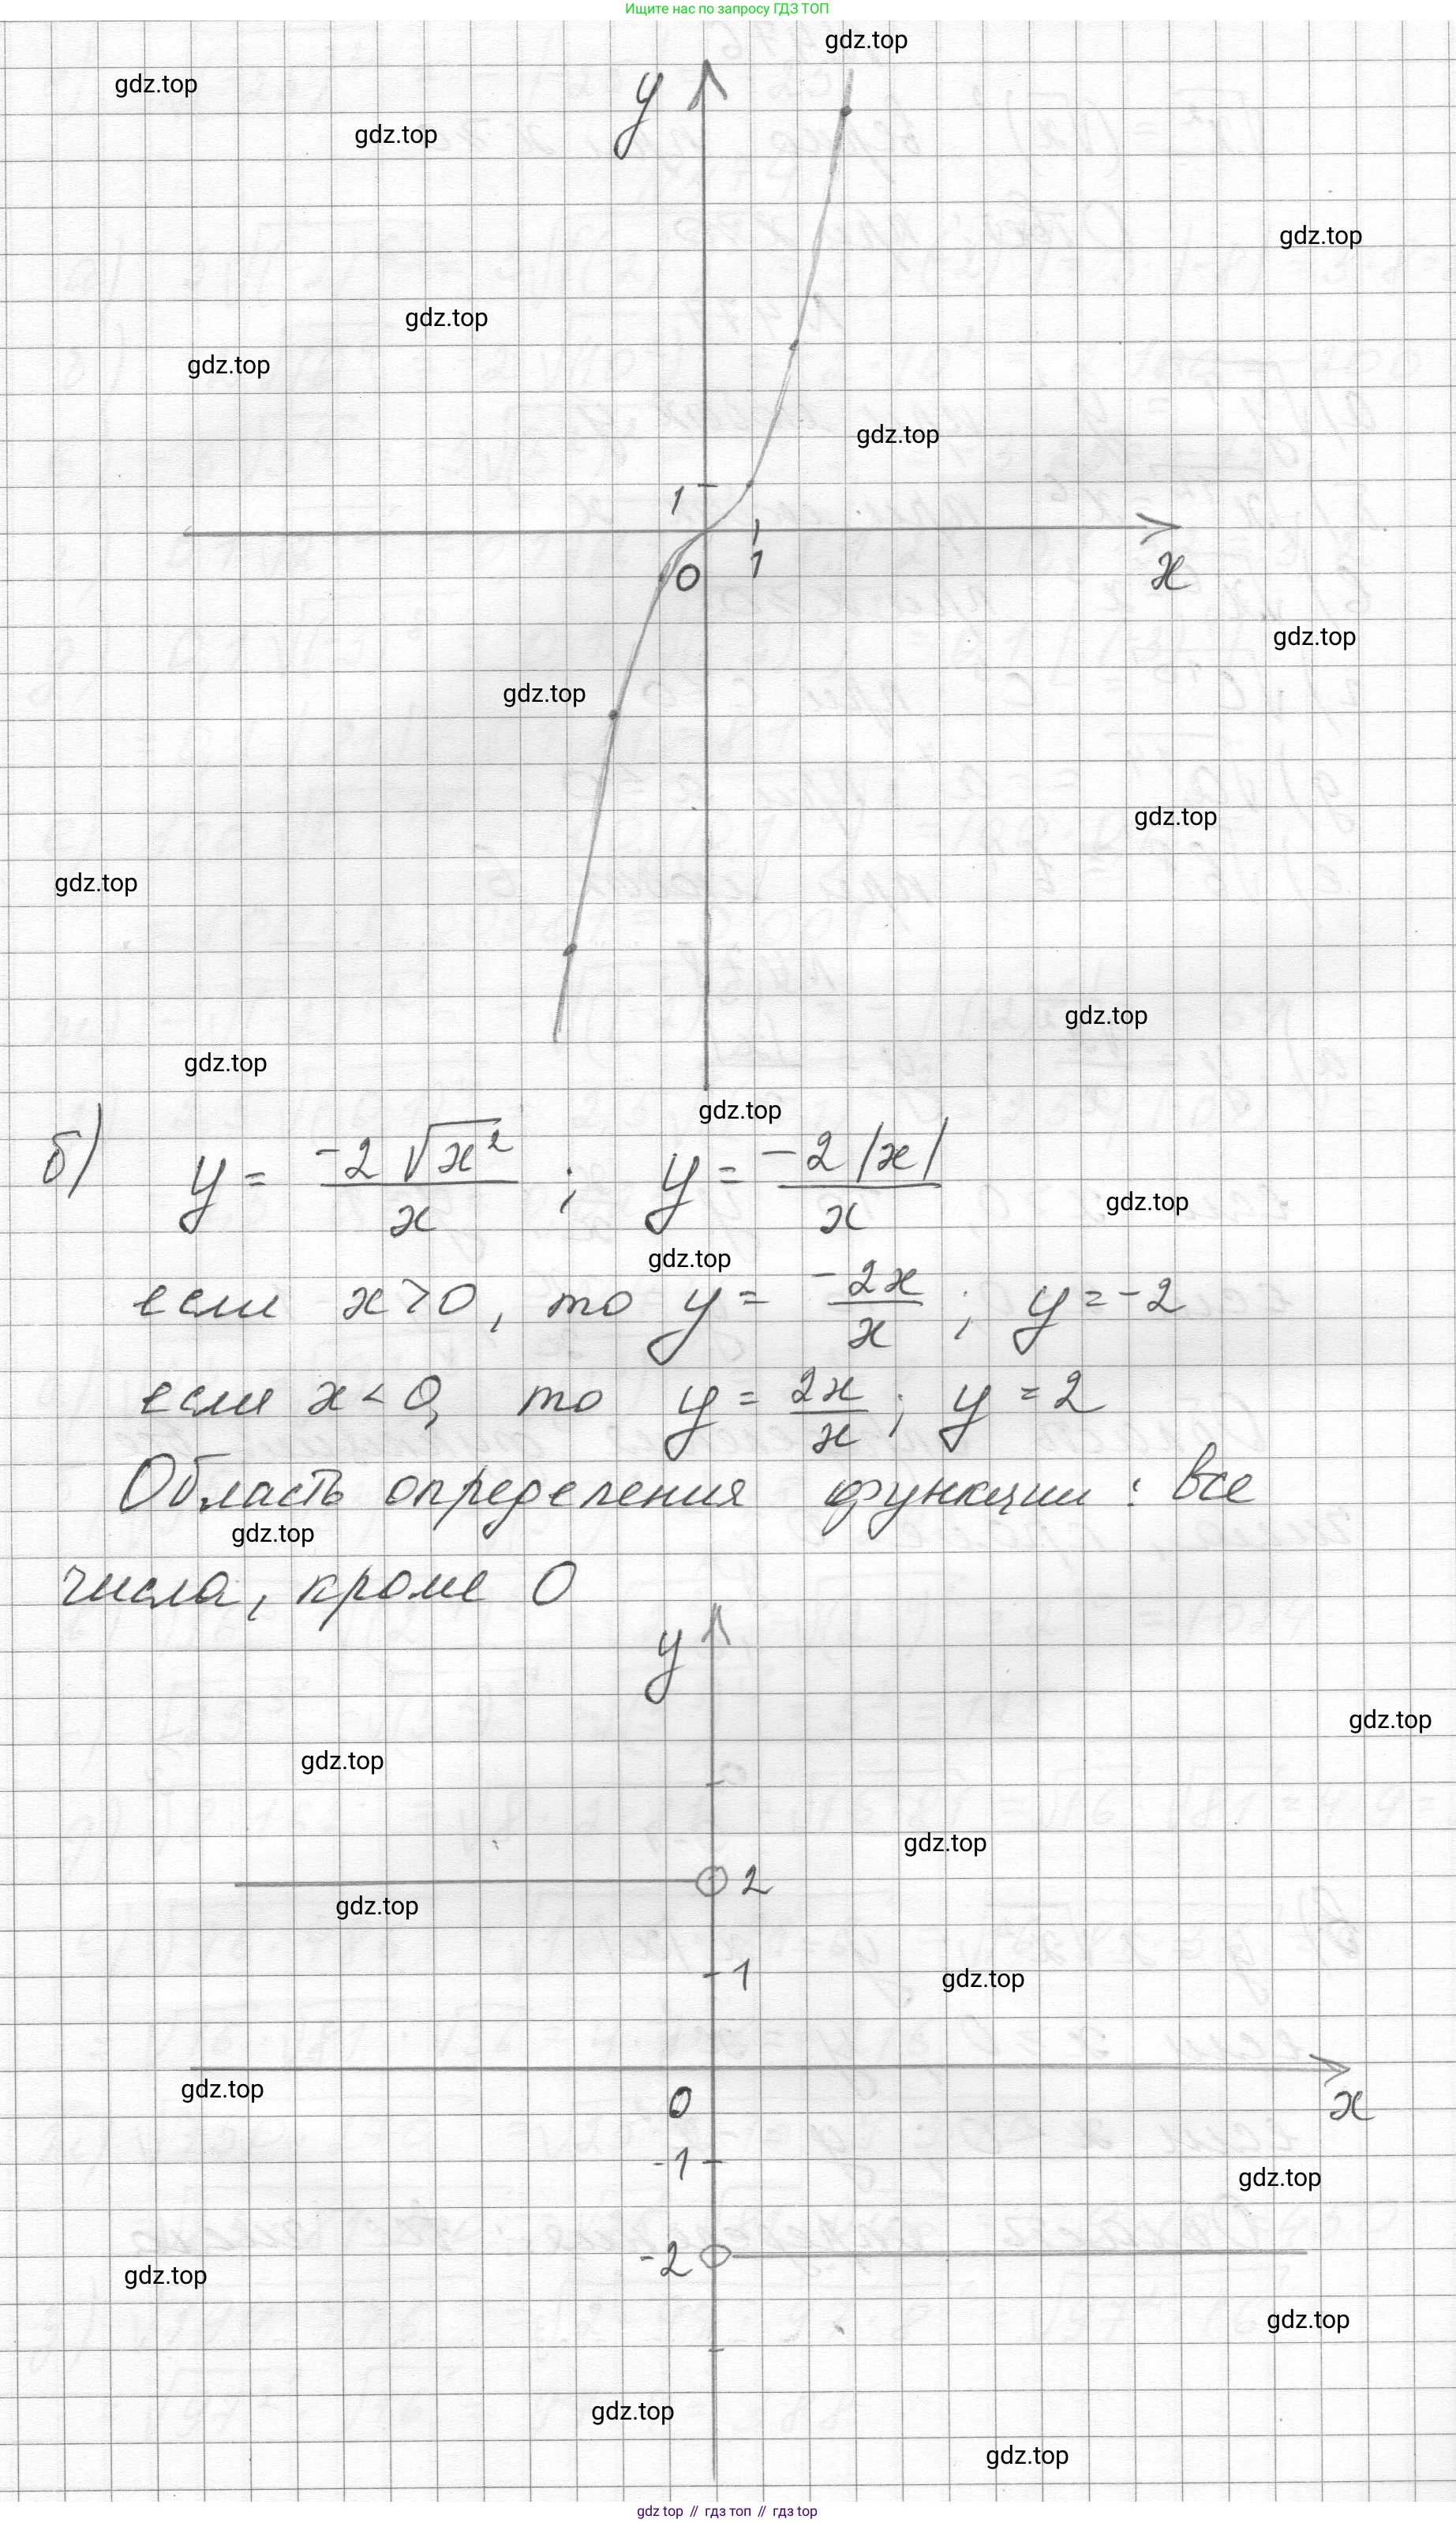 Ищите нас по запросу ГДЗ ТОП
gdz.top
gdz.top
y
gdz.top
gdz.top
gdz.top
gdz.top
gdz.top
1
0
1
x
gdz.top
gdz.top
gdz.top
gdz.top
gdz.top
gdz.top
gdz.top
б) y = -2√x² / x ; y = -2|x| / x
gdz.top
gdz.top
если x > 0, то y = -2x / x ; y = -2
если x < 0, то y = 2x / x ; y = 2
Область определения функции: все
gdz.top
числа, кроме 0
y
gdz.top
gdz.top
gdz.top
2
gdz.top
1
gdz.top
gdz.top
0
x
-1
gdz.top
-2
gdz.top
gdz.top
gdz.top
gdz.top
gdz top // гдз топ // гдз top